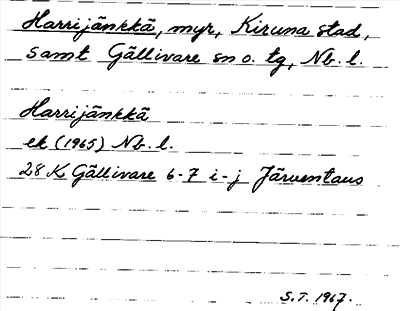 Harrijänkkä, myr, Kiruna stad,
samt Gällivare sn o. tg, Nb. l.
Harrijänkkä
ek (1965) Nb. l.
28 K Gällivare 6-7 i-j Järventaus
S.T. 1967.